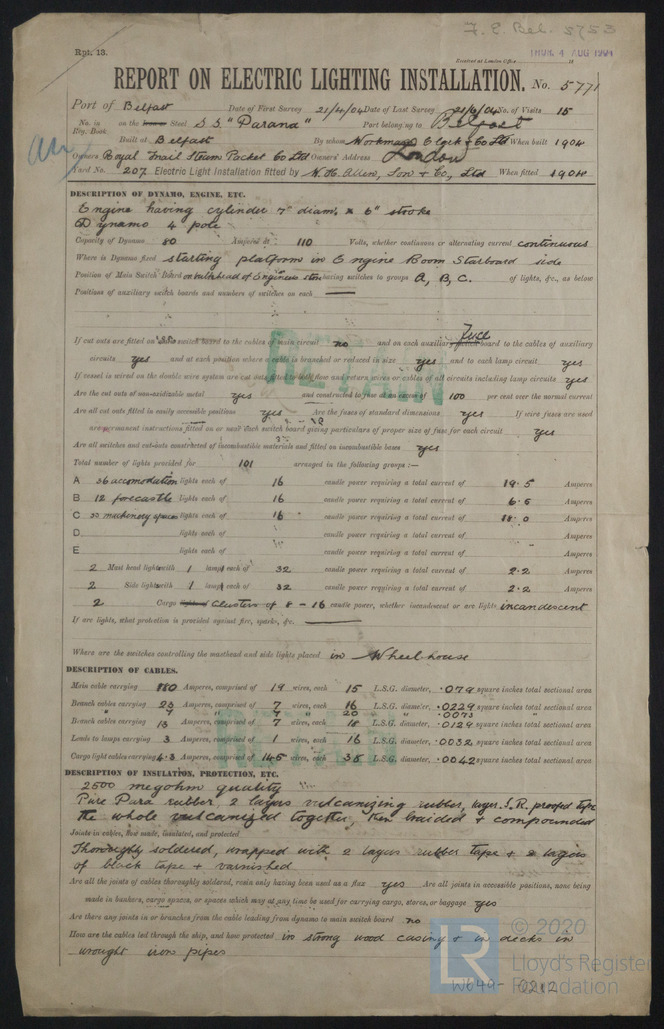 F. E. Bel. 5753
Rpt. 13.
THUR. 4 AUG 1904
Received at London Office 19
REPORT ON ELECTRIC LIGHTING INSTALLATION. No. 5771
Port of Belfast Date of First Survey 21/4/04 Date of Last Survey 21/6/04 No. of Visits 15
No. in Reg. Book on the Steel S.S. "Parana" Port belonging to Belfast London
Built at Belfast By whom Workman Clark & Co Ltd When built 1904
Owners Royal Mail Steam Packet Co Ltd Owners' Address
Yard No. 207 Electric Light Installation fitted by W. H. Allen, Son & Co, Ltd When fitted 1904
DESCRIPTION OF DYNAMO, ENGINE, ETC.
Engine having cylinder 7" diam. x 6" stroke
Dynamo 4 pole
Capacity of Dynamo 80 Amperes at 110 Volts, whether continuous or alternating current continuous
Where is Dynamo fixed starting platform in Engine Room Starboard side
Position of Main Switch Board on bulkhead of Engineers store having switches to groups A, B, C. of lights, &c., as below
Positions of auxiliary switch boards and numbers of switches on each —
If cut outs are fitted on main switch board to the cables of main circuit no and on each auxiliary Fuse switch board to the cables of auxiliary
circuits yes and at each position where a cable is branched or reduced in size yes and to each lamp circuit yes
If vessel is wired on the double wire system are cut outs fitted to both flow and return wires or cables of all circuits including lamp circuits yes
Are the cut outs of non-oxidizable metal yes and constructed to fuse at an excess of 100 per cent over the normal current
Are all cut outs fitted in easily accessible positions yes Are the fuses of standard dimensions yes If wire fuses are used
are permanent instructions fitted on or near each switch board giving particulars of proper size of fuse for each circuit yes
Are all switches and cut-outs constructed of incombustible materials and fitted on incombustible bases yes
Total number of lights provided for 101 arranged in the following groups :—
A 36 accomodation lights each of 16 candle power requiring a total current of 19.5 Amperes
B 12 forecastle lights each of 16 candle power requiring a total current of 6.5 Amperes
C 33 machinery space lights each of 16 candle power requiring a total current of 18.0 Amperes
D lights each of candle power requiring a total current of Amperes
E lights each of candle power requiring a total current of Amperes
2 Mast head lights with 1 lamp each of 32 candle power requiring a total current of 2.2 Amperes
2 Side lights with 1 lamp each of 32 candle power requiring a total current of 2.2 Amperes
2 Cargo lights of Clusters of 8 - 16 candle power, whether incandescent or arc lights incandescent
If arc lights, what protection is provided against fire, sparks, &c. —
Where are the switches controlling the masthead and side lights placed in Wheelhouse
DESCRIPTION OF CABLES.
Main cable carrying 80 Amperes, comprised of 19 wires, each 15 L.S.G. diameter, .079 square inches total sectional area
Branch cables carrying 23 Amperes, comprised of 7 wires, each 16 L.S.G. diameter, .0229 square inches total sectional area
" 7 " 7 " 20 " " .0073 "
Branch cables carrying 13 Amperes, comprised of 7 wires, each 18 L.S.G. diameter, .0129 square inches total sectional area
Leads to lamps carrying 3 Amperes, comprised of 1 wires, each 16 L.S.G. diameter, .0032 square inches total sectional area
Cargo light cables carrying 4.3 Amperes, comprised of 145 wires, each 38 L.S.G. diameter, .0042 square inches total sectional area
DESCRIPTION OF INSULATION, PROTECTION, ETC.
2500 megohm quality
Pure Para rubber, 2 layers vulcanizing rubber, layer I.R. proofed tape
the whole vulcanized together, then braided & compounded
Joints in cables, how made, insulated, and protected
Thoroughly soldered, wrapped with 2 layers rubber tape & 2 layers
of black tape & varnished
Are all the joints of cables thoroughly soldered, resin only having been used as a flux yes Are all joints in accessible positions, none being
made in bunkers, cargo spaces, or spaces which may at any time be used for carrying cargo, stores, or baggage yes
Are there any joints in or branches from the cable leading from dynamo to main switch board no
How are the cables led through the ship, and how protected in strong wood casing & in decks in
wrought iron pipes
© 2020
LR Lloyd's Register Foundation
W649-0212